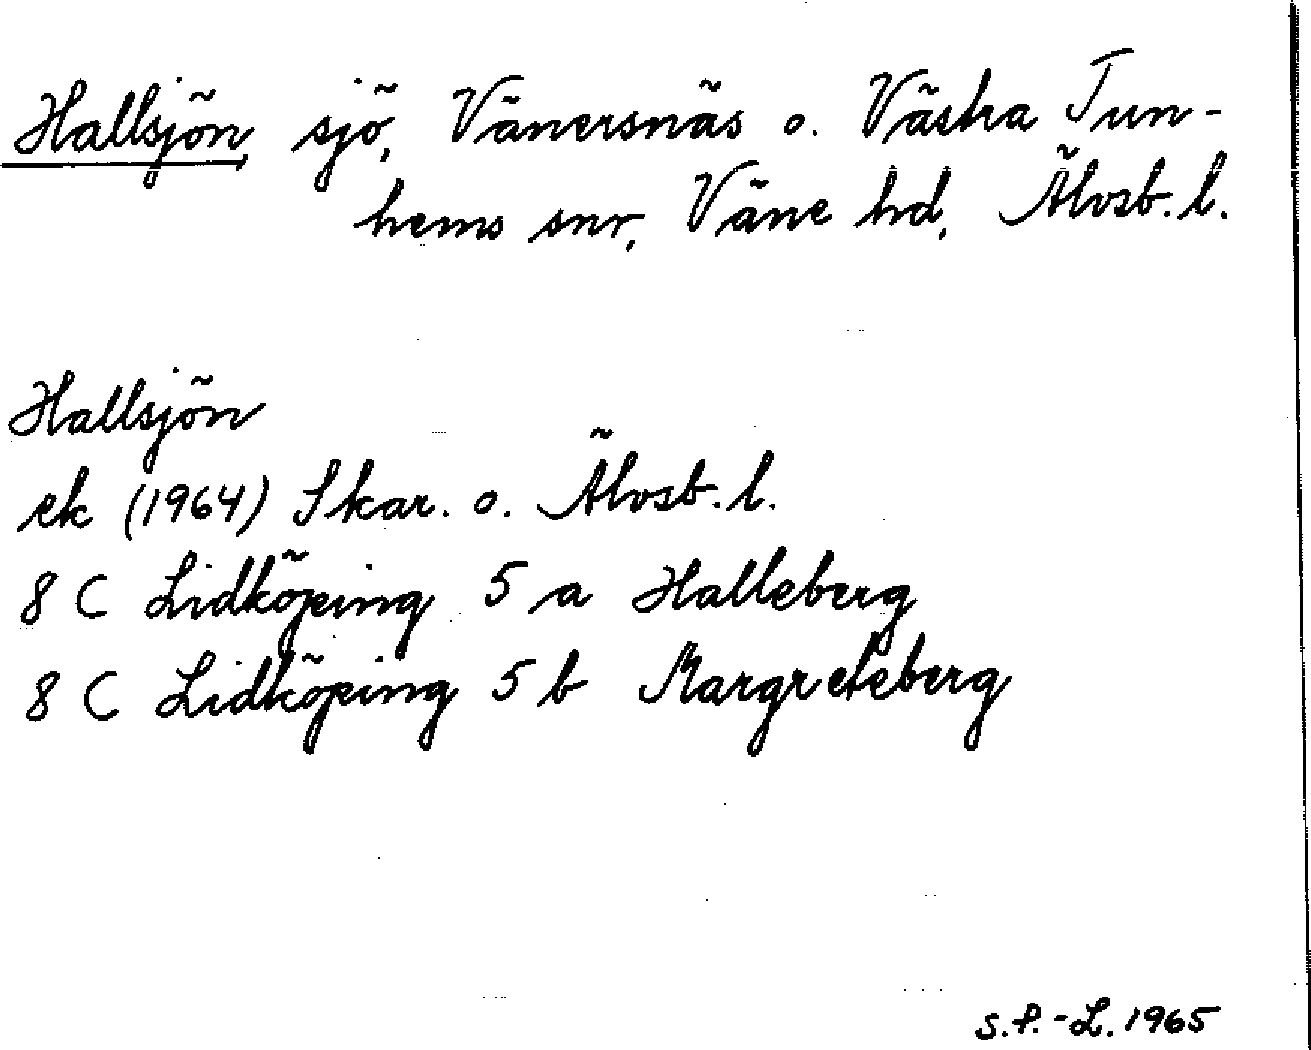 Hallsjön, sjö, Vänersnäs o. Västra Tun-
hems snr, Väne hd, Älvsb. l.
Hallsjön
ek (1964) Skar. o. Älvsb. l.
8 C Lidköping 5 a Halleberg
8 C Lidköping 5 b Margreteberg
S. P.-L. 1965